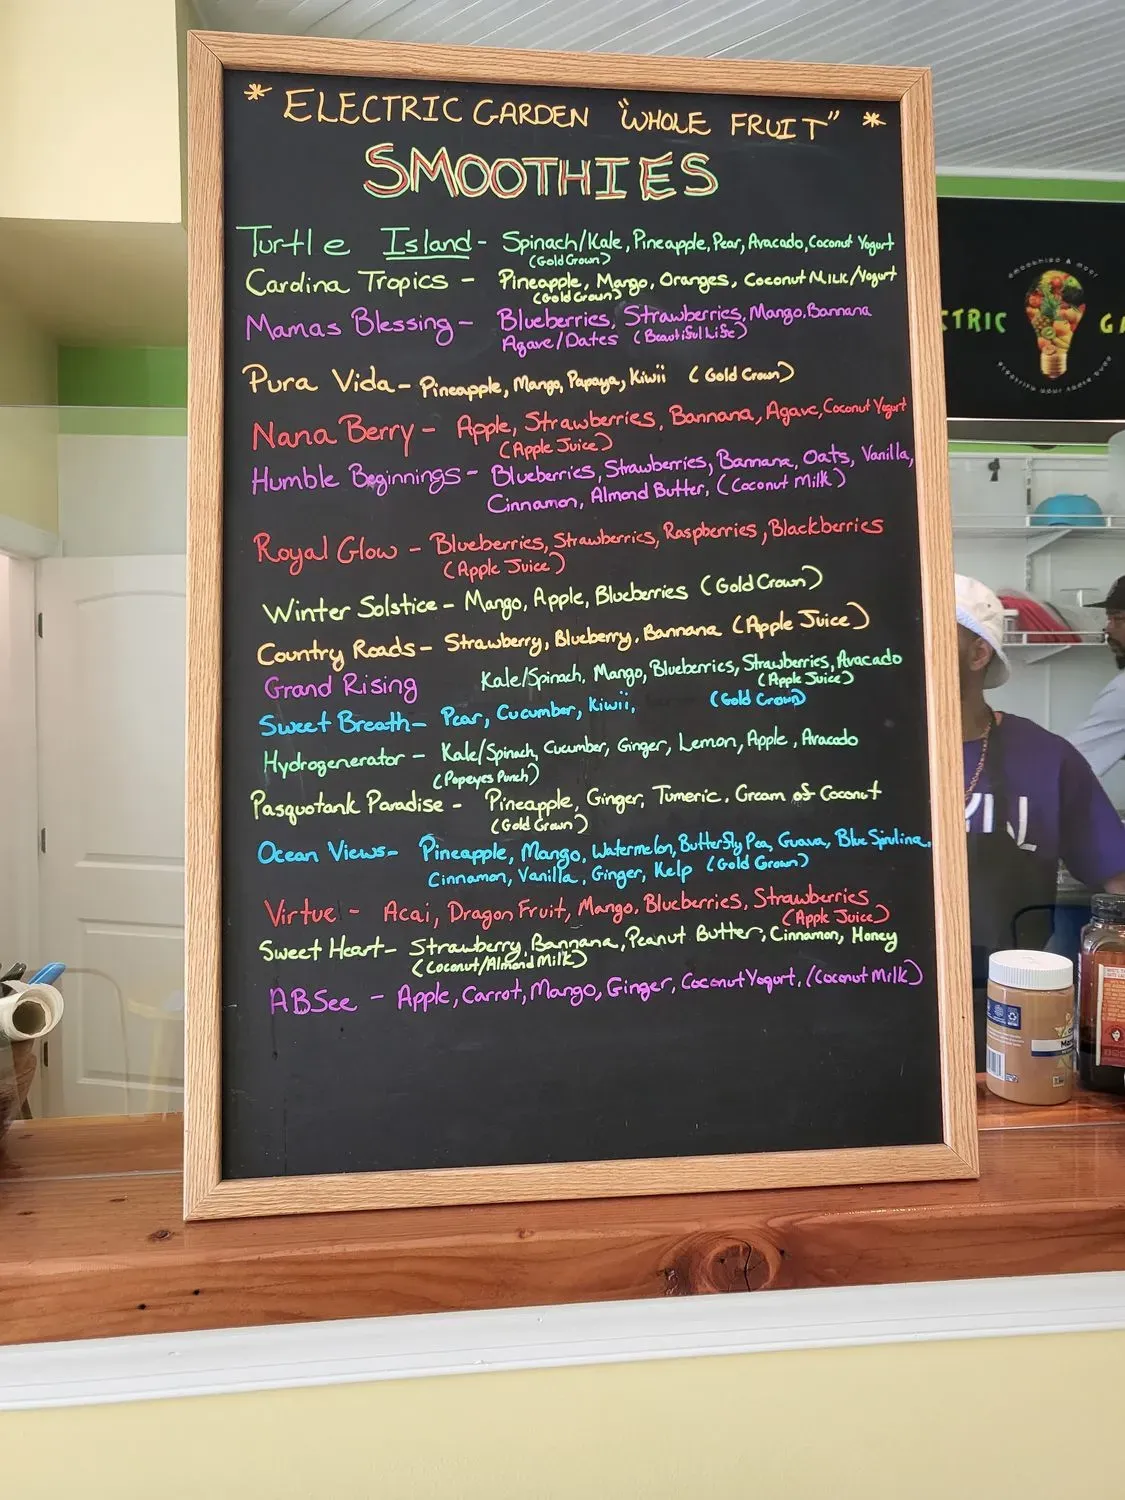 * ELECTRIC GARDEN "WHOLE FRUIT" *
SMOOTHIES
Turtle Island - Spinach/Kale, Pineapple, Pear, Avacado, Coconut Yogurt
(Gold Crown)
Carolina Tropics - Pineapple, Mango, Oranges, Coconut Milk/Yogurt
(Gold Crown)
Mamas Blessing - Blueberries, Strawberries, Mango, Bannana
Agave/Dates (Beautiful Life)
Pura Vida - Pineapple, Mango, Papaya, Kiwii (Gold Crown)
Nana Berry - Apple, Strawberries, Bannana, Agave, Coconut Yogurt
(Apple Juice)
Humble Beginnings - Blueberries, Strawberries, Bannana, Oats, Vanilla,
Cinnamon, Almond Butter, (Coconut Milk)
Royal Glow - Blueberries, Strawberries, Raspberries, Blackberries
(Apple Juice)
Winter Solstice - Mango, Apple, Blueberries (Gold Crown)
Country Roads - Strawberry, Blueberry, Bannana (Apple Juice)
Grand Rising Kale/Spinach, Mango, Blueberries, Strawberries, Avacado
(Apple Juice)
Sweet Breath - Pear, Cucumber, Kiwii, (Gold Crown)
Hydrogenerator - Kale/Spinach, Cucumber, Ginger, Lemon, Apple, Avacado
(Popeyes Punch)
Pasquotank Paradise - Pineapple, Ginger, Tumeric, Cream of Coconut
(Gold Crown)
Ocean Views - Pineapple, Mango, Watermelon, Butterfly Pea, Guava, Blue Spirulina,
Cinnamon, Vanilla, Ginger, Kelp (Gold Crown)
Virtue - Acai, Dragon Fruit, Mango, Blueberries, Strawberries
(Apple Juice)
Sweet Heart - Strawberry, Bannana, Peanut Butter, Cinnamon, Honey
(Coconut/Almond Milk)
ABSee - Apple, Carrot, Mango, Ginger, Coconut Yogurt, (Coconut Milk)
CTRIC GA
SMOOTHIES & MORE